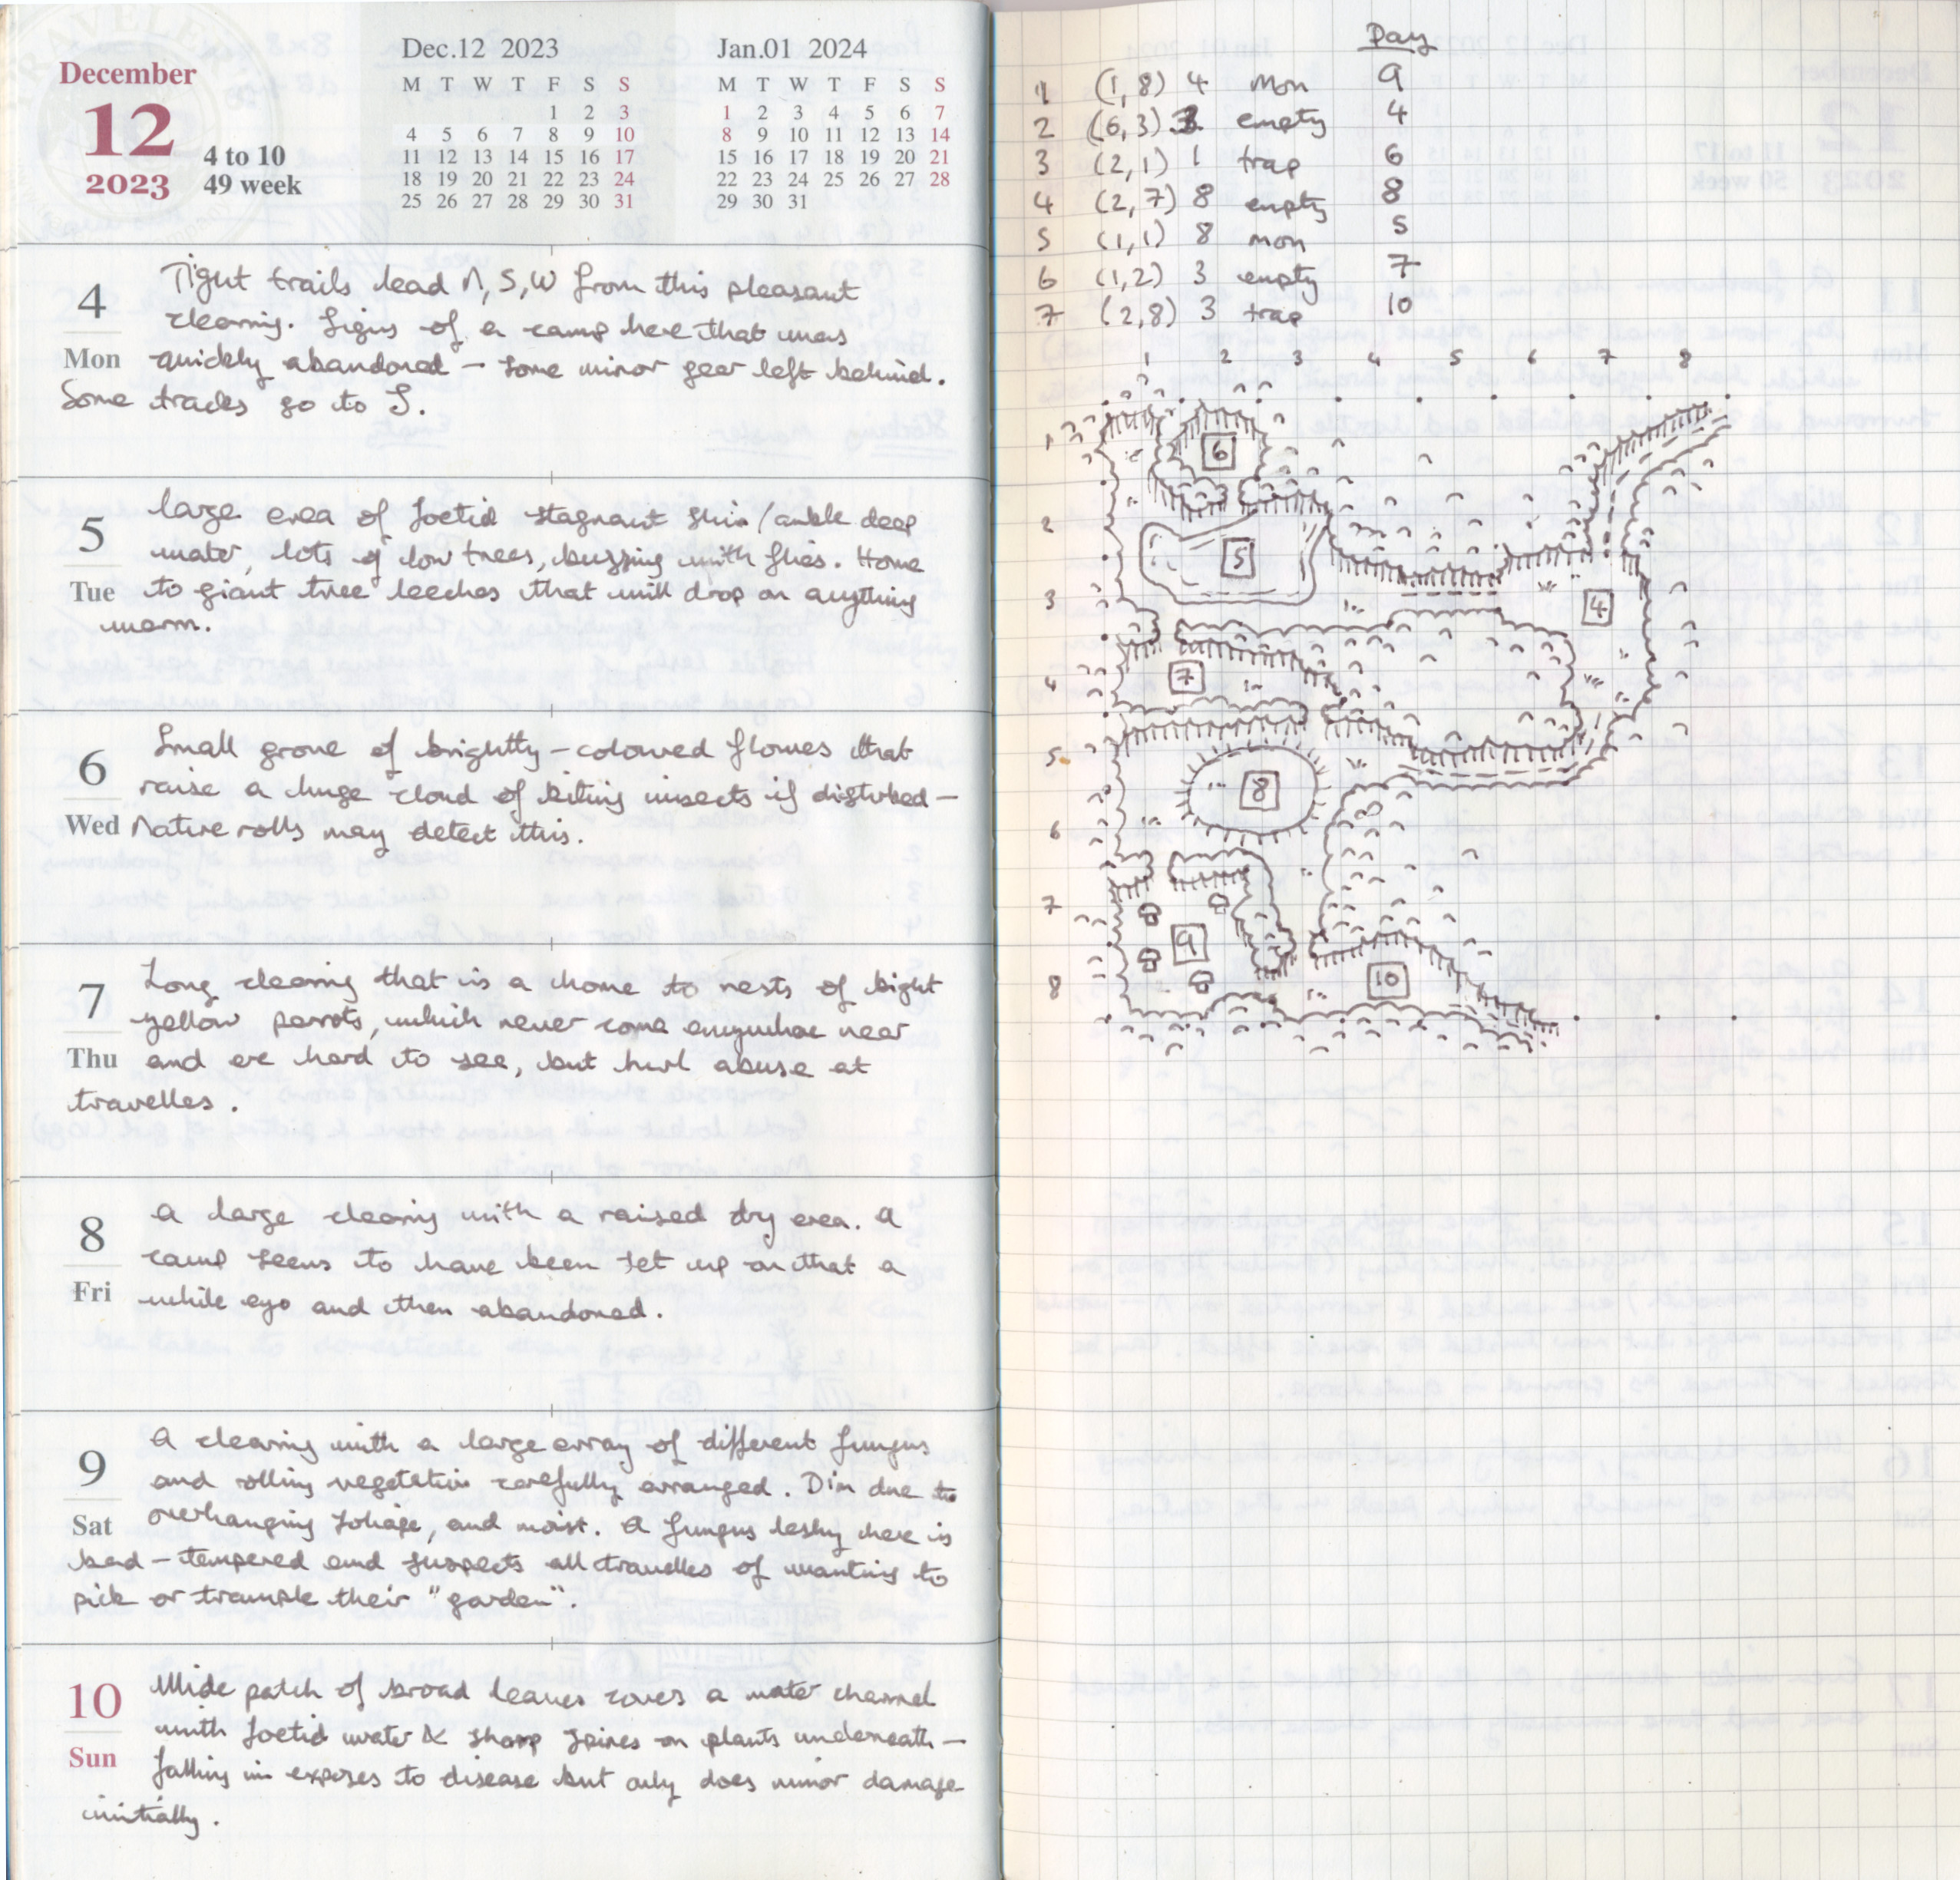 December
12
2023
4 to 10
49 week
Dec.12 2023
M T W T F S S
1 2 3
4 5 6 7 8 9 10
11 12 13 14 15 16 17
18 19 20 21 22 23 24
25 26 27 28 29 30 31
Jan.01 2024
M T W T F S S
1 2 3 4 5 6 7
8 9 10 11 12 13 14
15 16 17 18 19 20 21
22 23 24 25 26 27 28
29 30 31
4
Mon
Tight trails lead N, S, W from this pleasant
clearing. Signs of a camp here that was
quickly abandoned – some minor gear left behind.
Some tracks go to S.
5
Tue
Large area of foetid stagnant shin/ankle deep
water, lots of low trees, buzzing with flies. Home
to giant tree leeches that will drop on anything
warm.
6
Wed
Small grove of brightly-coloured flowes that
raise a huge cloud of biting insects if disturbed –
Nature rolls may detect this.
7
Thu
Long clearing that is a home to nests of bright
yellow parrots, which never come anywhere near
and are hard to see, but hurl abuse at
travelles.
8
Fri
A large clearing with a raised dry area. A
camp seems to have been set up on that a
while ago and then abandoned.
9
Sat
A clearing with a large array of different fungus
and rotting vegetation carefully arranged. Dim due to
overhanging foliage, and moist. A fungus leshy here is
bad-tempered and suspects all travelles of wanting to
pick or trample their "garden".
10
Sun
Wide patch of broad leaves covers a water channel
with foetid water & sharp spines on plants underneath –
falling in exposes to disease but only does minor damage
initially.
Day
1 (1,8) 4 mon 9
2 (6,3) 3 empty 4
3 (2,1) 1 trap 6
4 (2,7) 8 empty 8
5 (1,1) 8 mon 5
6 (1,2) 3 empty 7
7 (2,8) 3 trap 10
1 2 3 4 5 6 7 8
1
6
2
5
3
4
4
7
5
8
6
7
9
8
10